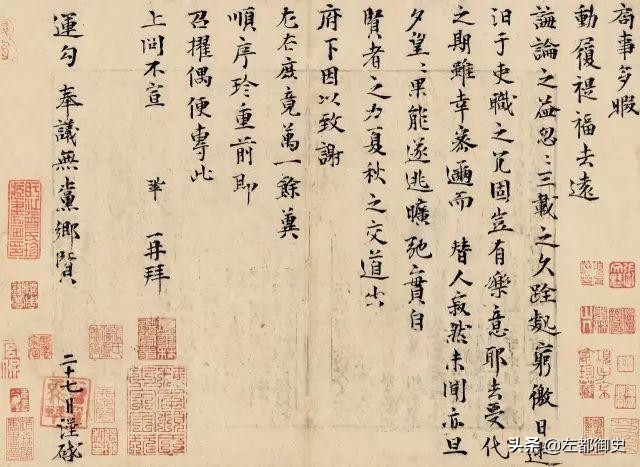 局事多暇
動履禔福去遠
誨論之益忽〻三載之久跧處窮徼日迷
汩于吏職之冗固豈有樂意耶去受代
之期雖幸密邇而替人寂然未聞亦旦
夕望〻果能遂逃曠弛實自
賢者之力夏秋之交道出
府下因以致謝
左右庶竟萬一餘冀
順序珍重前即
召擢偶便專此
上問不宣 鞏再拜
運勾奉議無黨鄉賢 二十七日謹啓
头条 @左都御史